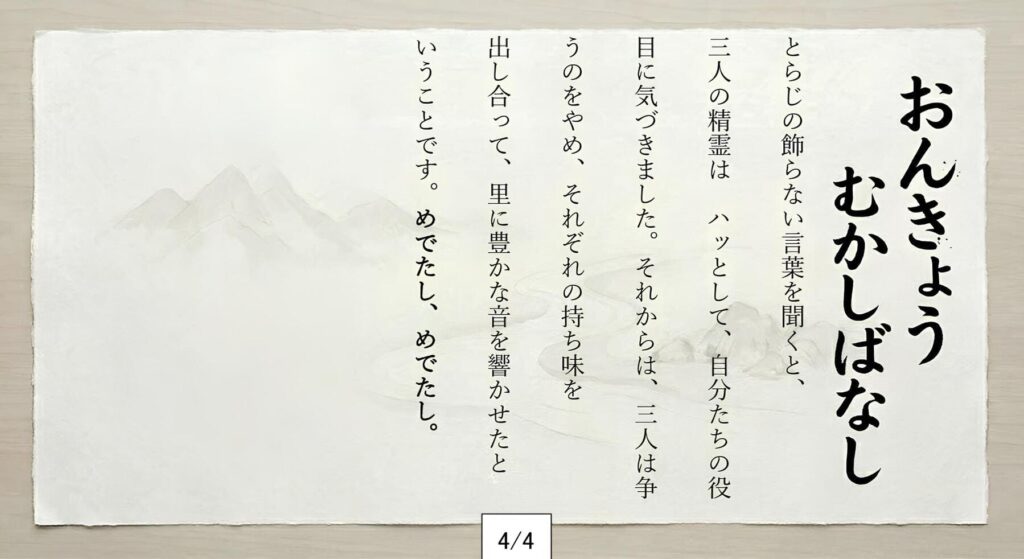 おんきょう
むかしばなし
とらじの飾らない言葉を聞くと、
三人の精霊は　ハッとして、自分たちの役
目に気づきました。それからは、三人は争
うのをやめ、それぞれの持ち味を
出し合って、里に豊かな音を響かせたと
いうことです。めでたし、めでたし。
4/4